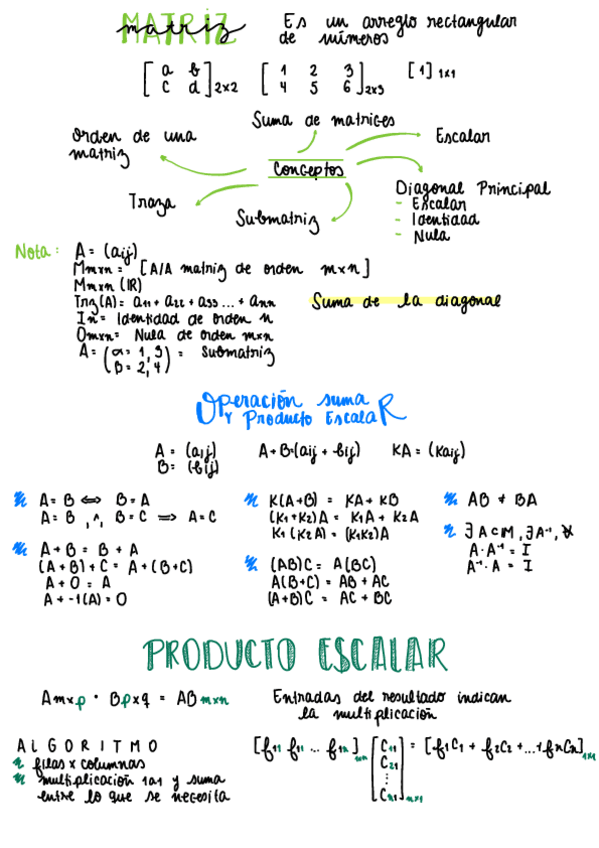 MATRIZ
matriz
Es un arreglo rectangular
de números
[ a b
c d ] 2x2
[ 1 2 3
4 5 6 ] 2x3
[1] 1x1
Suma de matrices
Orden de una
matriz
Escalar
Conceptos
Traza
Submatriz
Diagonal Principal
- Escalar
- Identidad
- Nula
Nota: A = (aij)
Mmxn = [A/A matriz de orden mxn]
Mmxn (IR)
Trz(A) = a11 + a22 + a33 ... + ann Suma de la diagonal
In = Identidad de orden n
Omxn = Nula de orden mxn
A = ( α = 1, 3
β = 2, 4 ) = Submatriz
Operación suma
y Producto EscalaR
A = (aij) A+B=(aij + bij) KA = (Kaij)
B = (bij)
A = B ⟺ B = A
A = B , ∧, B = C ⟹ A = C
A + B = B + A
(A + B) + C = A + (B+C)
A + O = A
A + -1(A) = O
K(A+B) = KA + KB
(K1+K2)A = K1A + K2A
K1 (K2A) = (K1K2)A
(AB)C = A(BC)
A(B+C) = AB + AC
(A+B)C = AC + BC
AB ≠ BA
∃ A ∈ M, ∃ A⁻¹,
A · A⁻¹ = I
A⁻¹ · A = I
PRODUCTO ESCALAR
Amxp · Bpxq = ABmxn
Entradas del resultado indican
la multiplicación
ALGORITMO
filas x columnas
multiplicación 1a1 y suma
entre lo que se necesita
[f11 f11 ... f1n]
[C11
C21
⋮
Cn1] nx1
= [f1C1 + f2C2 + ...+ fnCn] 1x1